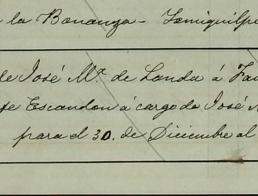 la Bonanza - Zimiquilpa
de José Mª de Landa á
te Escandon á cargo de José
para el 30. de Diciembre al